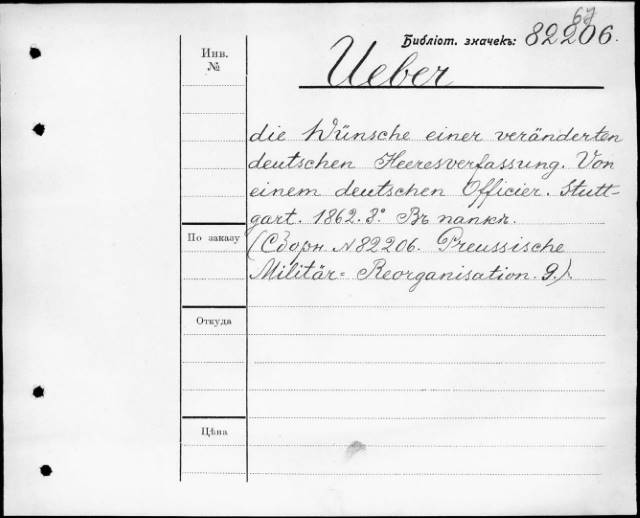 67
Инв.
№
Библіот. значекъ: 82206.
Ueber
die Wünsche einer veränderten
deutschen Heeresverfassung. Von
einem deutschen Officier. Stutt-
gart. 1862. 8°. Въ папкѣ.
По заказу
(Сборн. N 82206. Preussische
Militär= Reorganisation. 9.).
Откуда
Цѣна